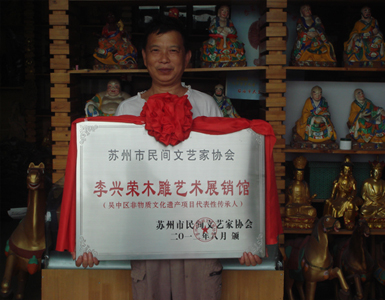 苏州市民间文艺家协会
李兴荣木雕艺术展销馆
(吴中区非物质文化遗产项目代表性传承人)
苏州市民间文艺家协会
二〇一二年八月 颁